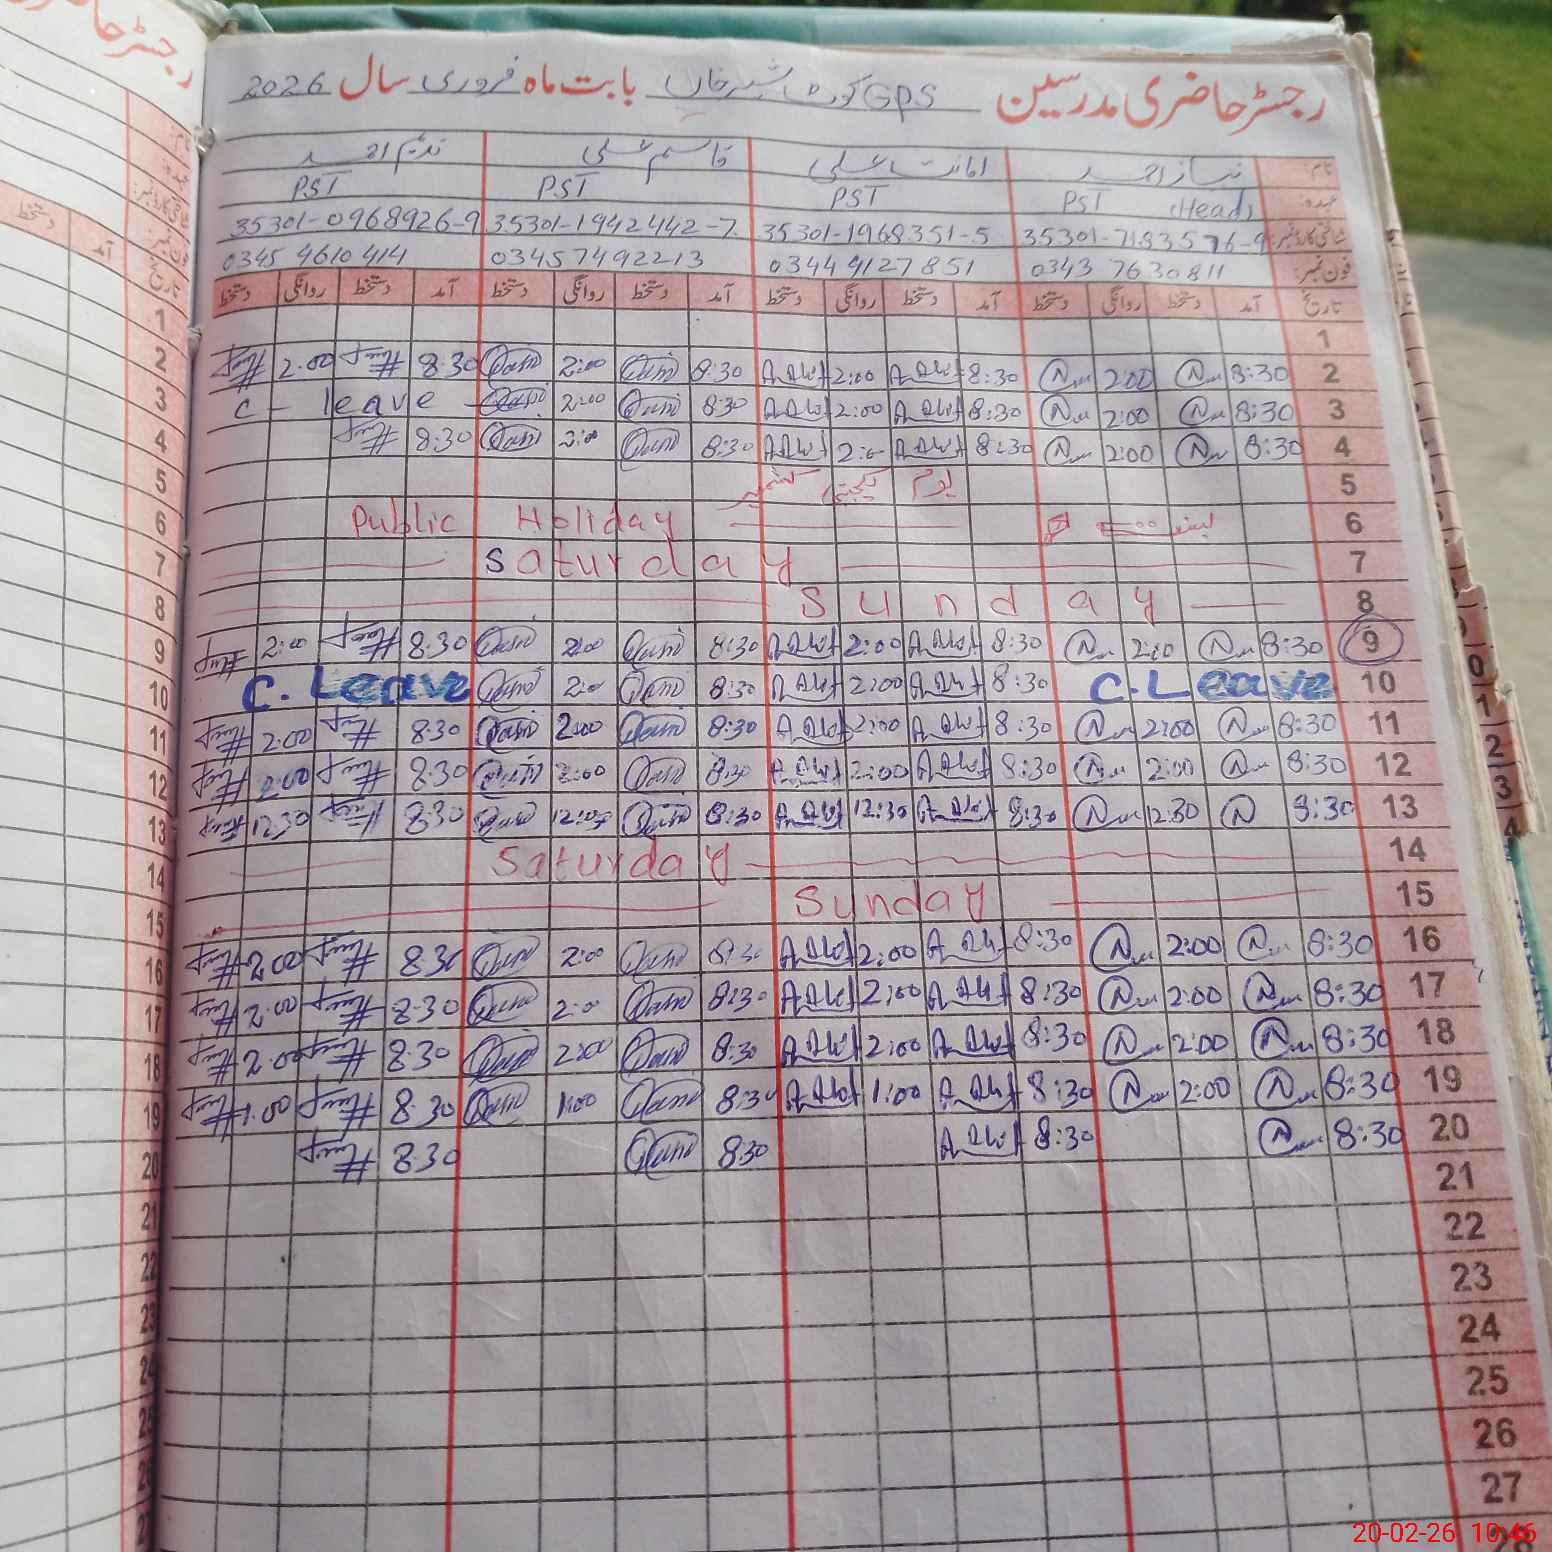 رجسٹر حاضری مدرسین GPS کوٹ شیر خاں بابت ماہ فروری سال 2026
نام: نیاز احمد امانت علی قاسم علی ندیم احمد
عہدہ: PST (Head) PST PST PST
شناختی کارڈ نمبر: 35301-7183576-9 35301-1968351-5 35301-1942442-7 35301-0968926-9
فون نمبر: 0343 7630811 0344 9127851 0345 7492213 0345 4610414
تاریخ آمد دستخط روانگی دستخط آمد دستخط روانگی دستخط آمد دستخط روانگی دستخط آمد دستخط روانگی دستخط
1
2 8:30 2:00 8:30 2:00 8:30 2:00 8:30 2:00
3 8:30 2:00 8:30 2:00 8:30 2:00 C - leave
4 8:30 2:00 8:30 2:0 8:30 2:00 8:30
5 یوم یکجہتی کشمیر
6 بسنت Public Holiday
7 Saturday
8 Sunday
9 8:30 2:00 8:30 2:00 8:30 2:00 8:30 2:00
10 C. Leave 8:30 2:00 8:30 2:0 C. Leave
11 8:30 2:00 8:30 2:00 8:30 2:00 8:30 2:00
12 8:30 2:00 8:30 2:00 8:30 2:00 8:30 2:00
13 8:30 12:30 8:30 12:30 8:30 8:30 12:30
14 Saturday
15 Sunday
16 8:30 2:00 8:30 2:00 8:30 2:00 8:30 2:00
17 8:30 2:00 8:30 2:00 8:30 2:0 8:30 2:00
18 8:30 2:00 8:30 2:00 8:30 2:00 8:30 2:00
19 8:30 2:00 8:30 1:00 8:30 1:00 8:30 1:00
20 8:30 8:30 8:30 8:30
21
22
23
24
25
26
27
28
20-02-26 10:46